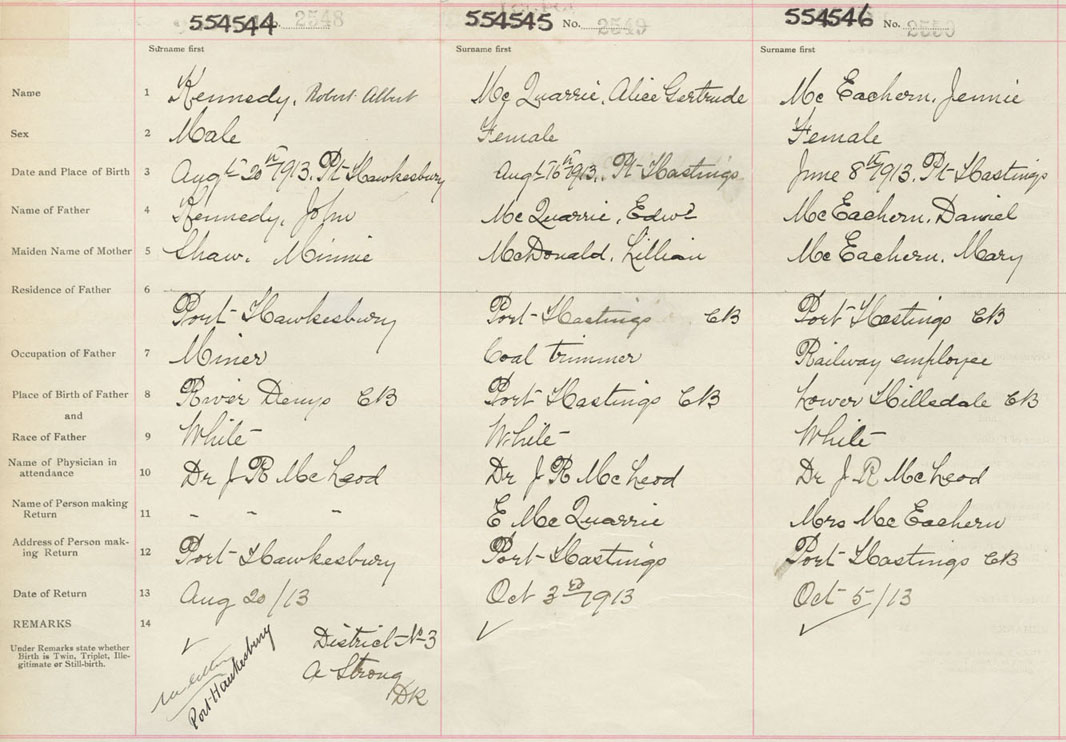 554544 No. 2548 554545 No. 2549 554546 No. 2550
Surname first Surname first Surname first
Name 1 Kennedy, Robert Albert Mc Quarrie, Alice Gertrude Mc Eachern, Jennie
Sex 2 Male Female Female
Date and Place of Birth 3 Augt 20th 1913. Pt Hawkesbury Augt 16th 1913. Pt Hastings June 8th 1913. Pt Hastings
Name of Father 4 Kennedy, John McQuarrie, Edwd McEachern, Daniel
Maiden Name of Mother 5 Shaw, Minnie McDonald, Lillian McEachern, Mary
Residence of Father 6 Port Hawkesbury Port Hastings CB Port Hastings CB
Occupation of Father 7 Miner Coal trimmer Railway employee
Place of Birth of Father 8 River Denys CB Port Hastings CB Lower Hillsdale CB
and
Race of Father 9 White White White
Name of Physician in
attendance 10 Dr J R McLeod Dr J R McLeod Dr J R McLeod
Name of Person making
Return 11 - - - E McQuarrie Mrs McEachern
Address of Person mak-
ing Return 12 Port Hawkesbury Port Hastings Port Hastings CB
Date of Return 13 Aug 20/13 Oct 3rd 1913 Oct 5/13
REMARKS 14
Under Remarks state whether
Birth is Twin, Triplet, Ille-
gitimate or Still-birth.
Port Hawkesbury
District No 3
A Strong
DR